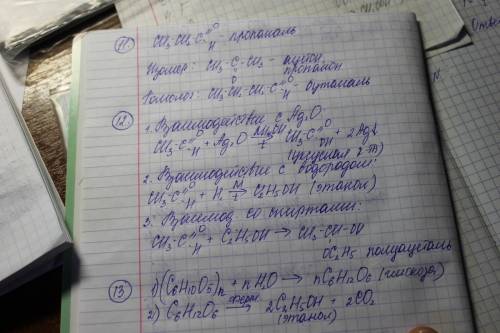 11. CH3 CH2 C=O -H - пропаналь
Изомер: CH3 - C - CH3 - ацетон,
O пропанон
Гомолог: CH3 CH2 CH2 C=O -H - бутаналь
12 1. Взаимодействие с Ag2O:
CH3-C=O -H + Ag2O NH4OH → t CH3-C=O OH + 2Ag↓
(уксусная к-та)
2. Взаимодействие с водородом:
CH3-C=O -H + H2 Ni → t C2H5OH (этанол)
3. Взаимод со спиртами:
CH3-C=O -H + C2H5OH → CH3-CH-OH
OC2H5 полуацеталь
13 1) (C6H10O5)n + nH2O → nC6H12O6 (глюкоза)
2) C6H12O6 → 2C2H5OH + 2CO2
(этанол)